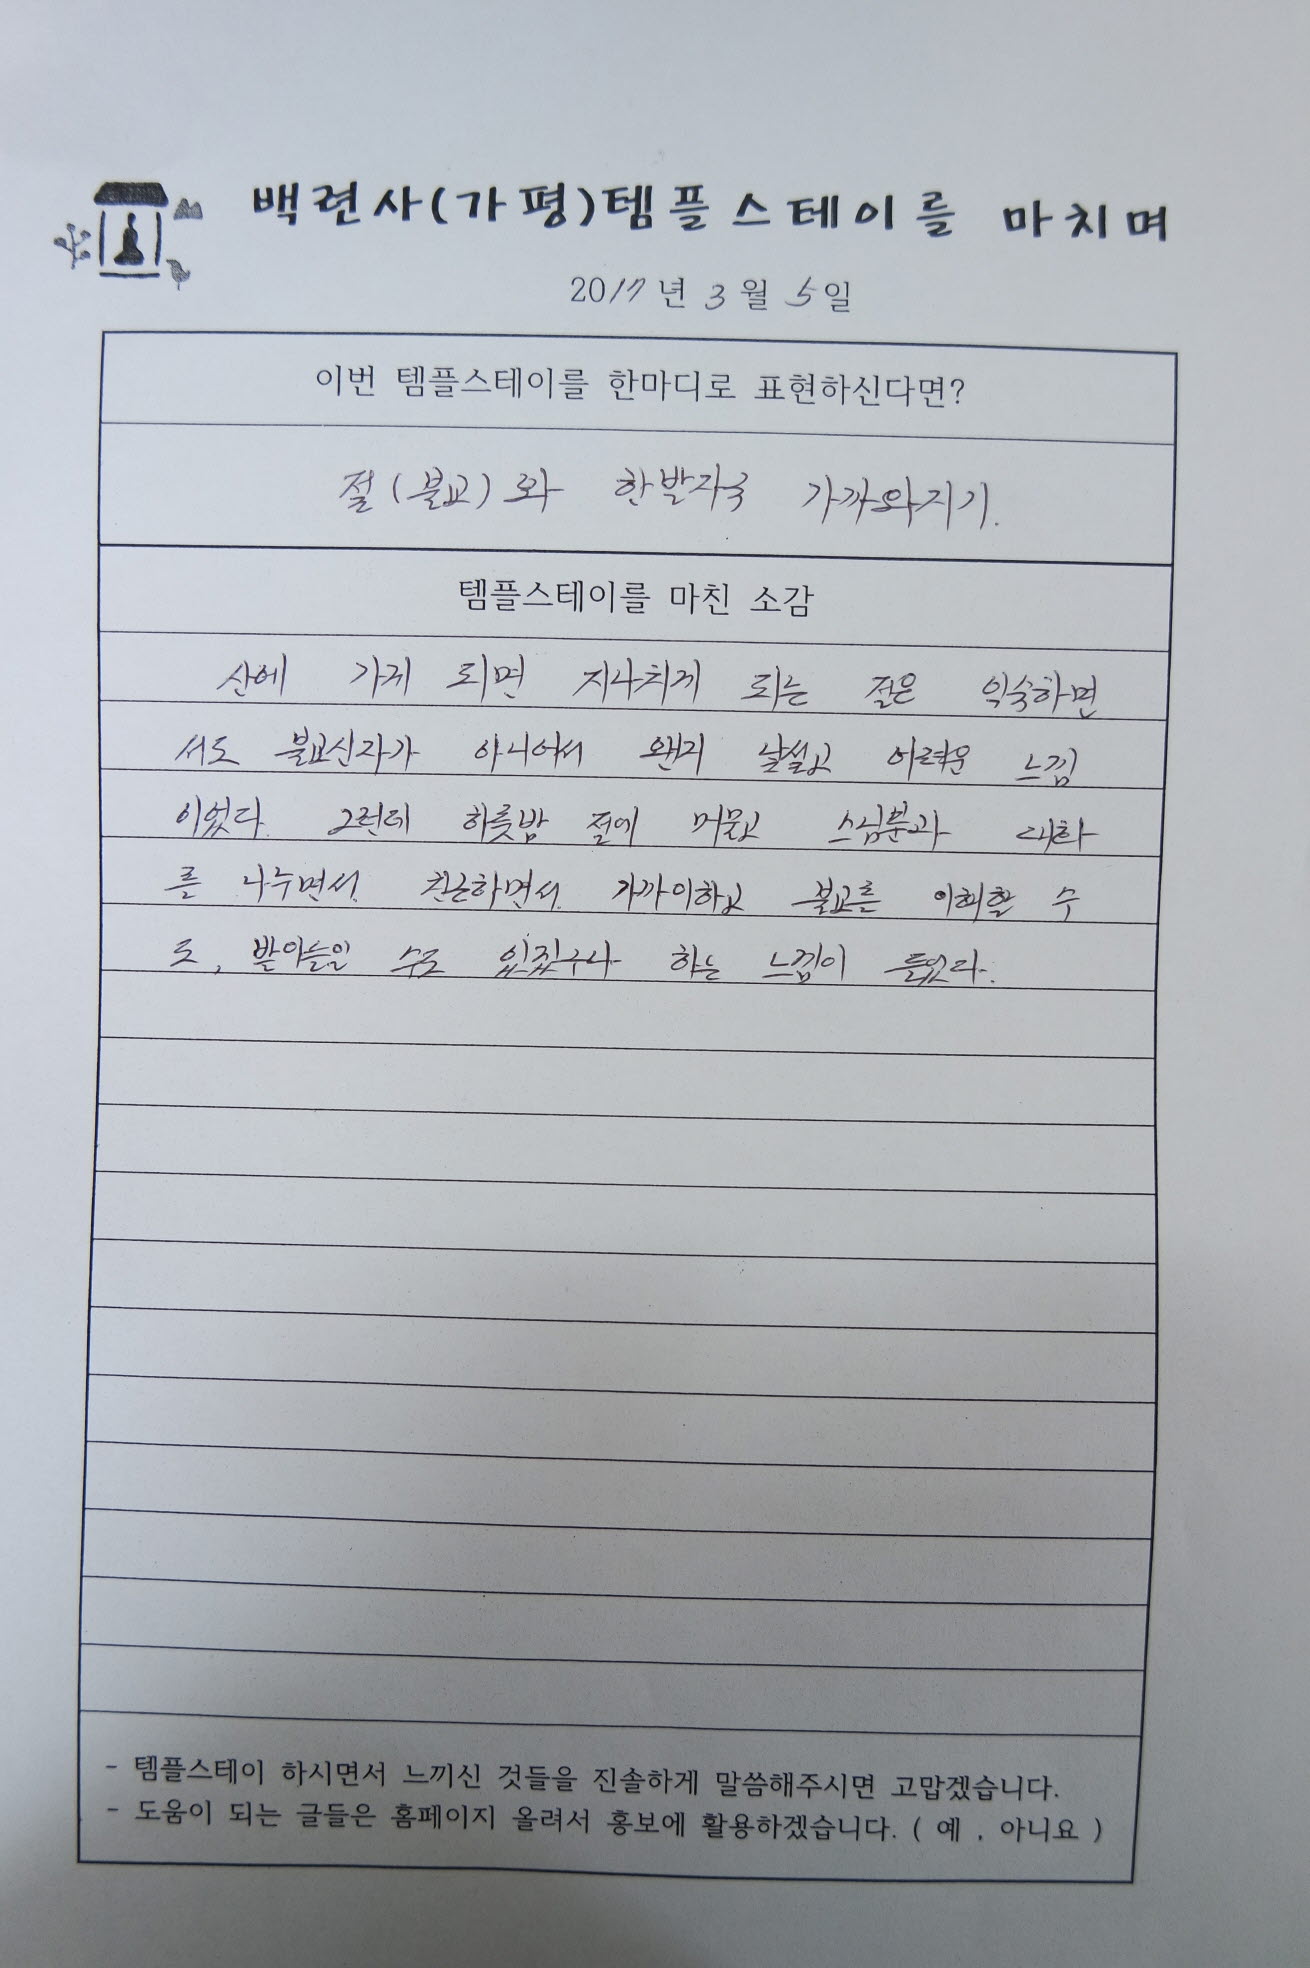 백련사(가평)템플스테이를 마치며
2017년 3월 5일
이번 템플스테이를 한마디로 표현하신다면?
절(불교)와 한발자국 가까와지기.
템플스테이를 마친 소감
산에 가게 되면 지나치게 되는 절은 익숙하면
서도 불교신자가 아니어서 왠지 낯설고 어려운 느낌
이었다. 그런데 하룻밤 절에 머물고 스님분과 대화
를 나누면서 친근하면서 가까이하고 불교를 이해할 수
도, 받아들일 수도 있겠구나 하는 느낌이 들었다.
- 템플스테이 하시면서 느끼신 것들을 진솔하게 말씀해주시면 고맙겠습니다.
- 도움이 되는 글들은 홈페이지 올려서 홍보에 활용하겠습니다. ( 예 , 아니요 )